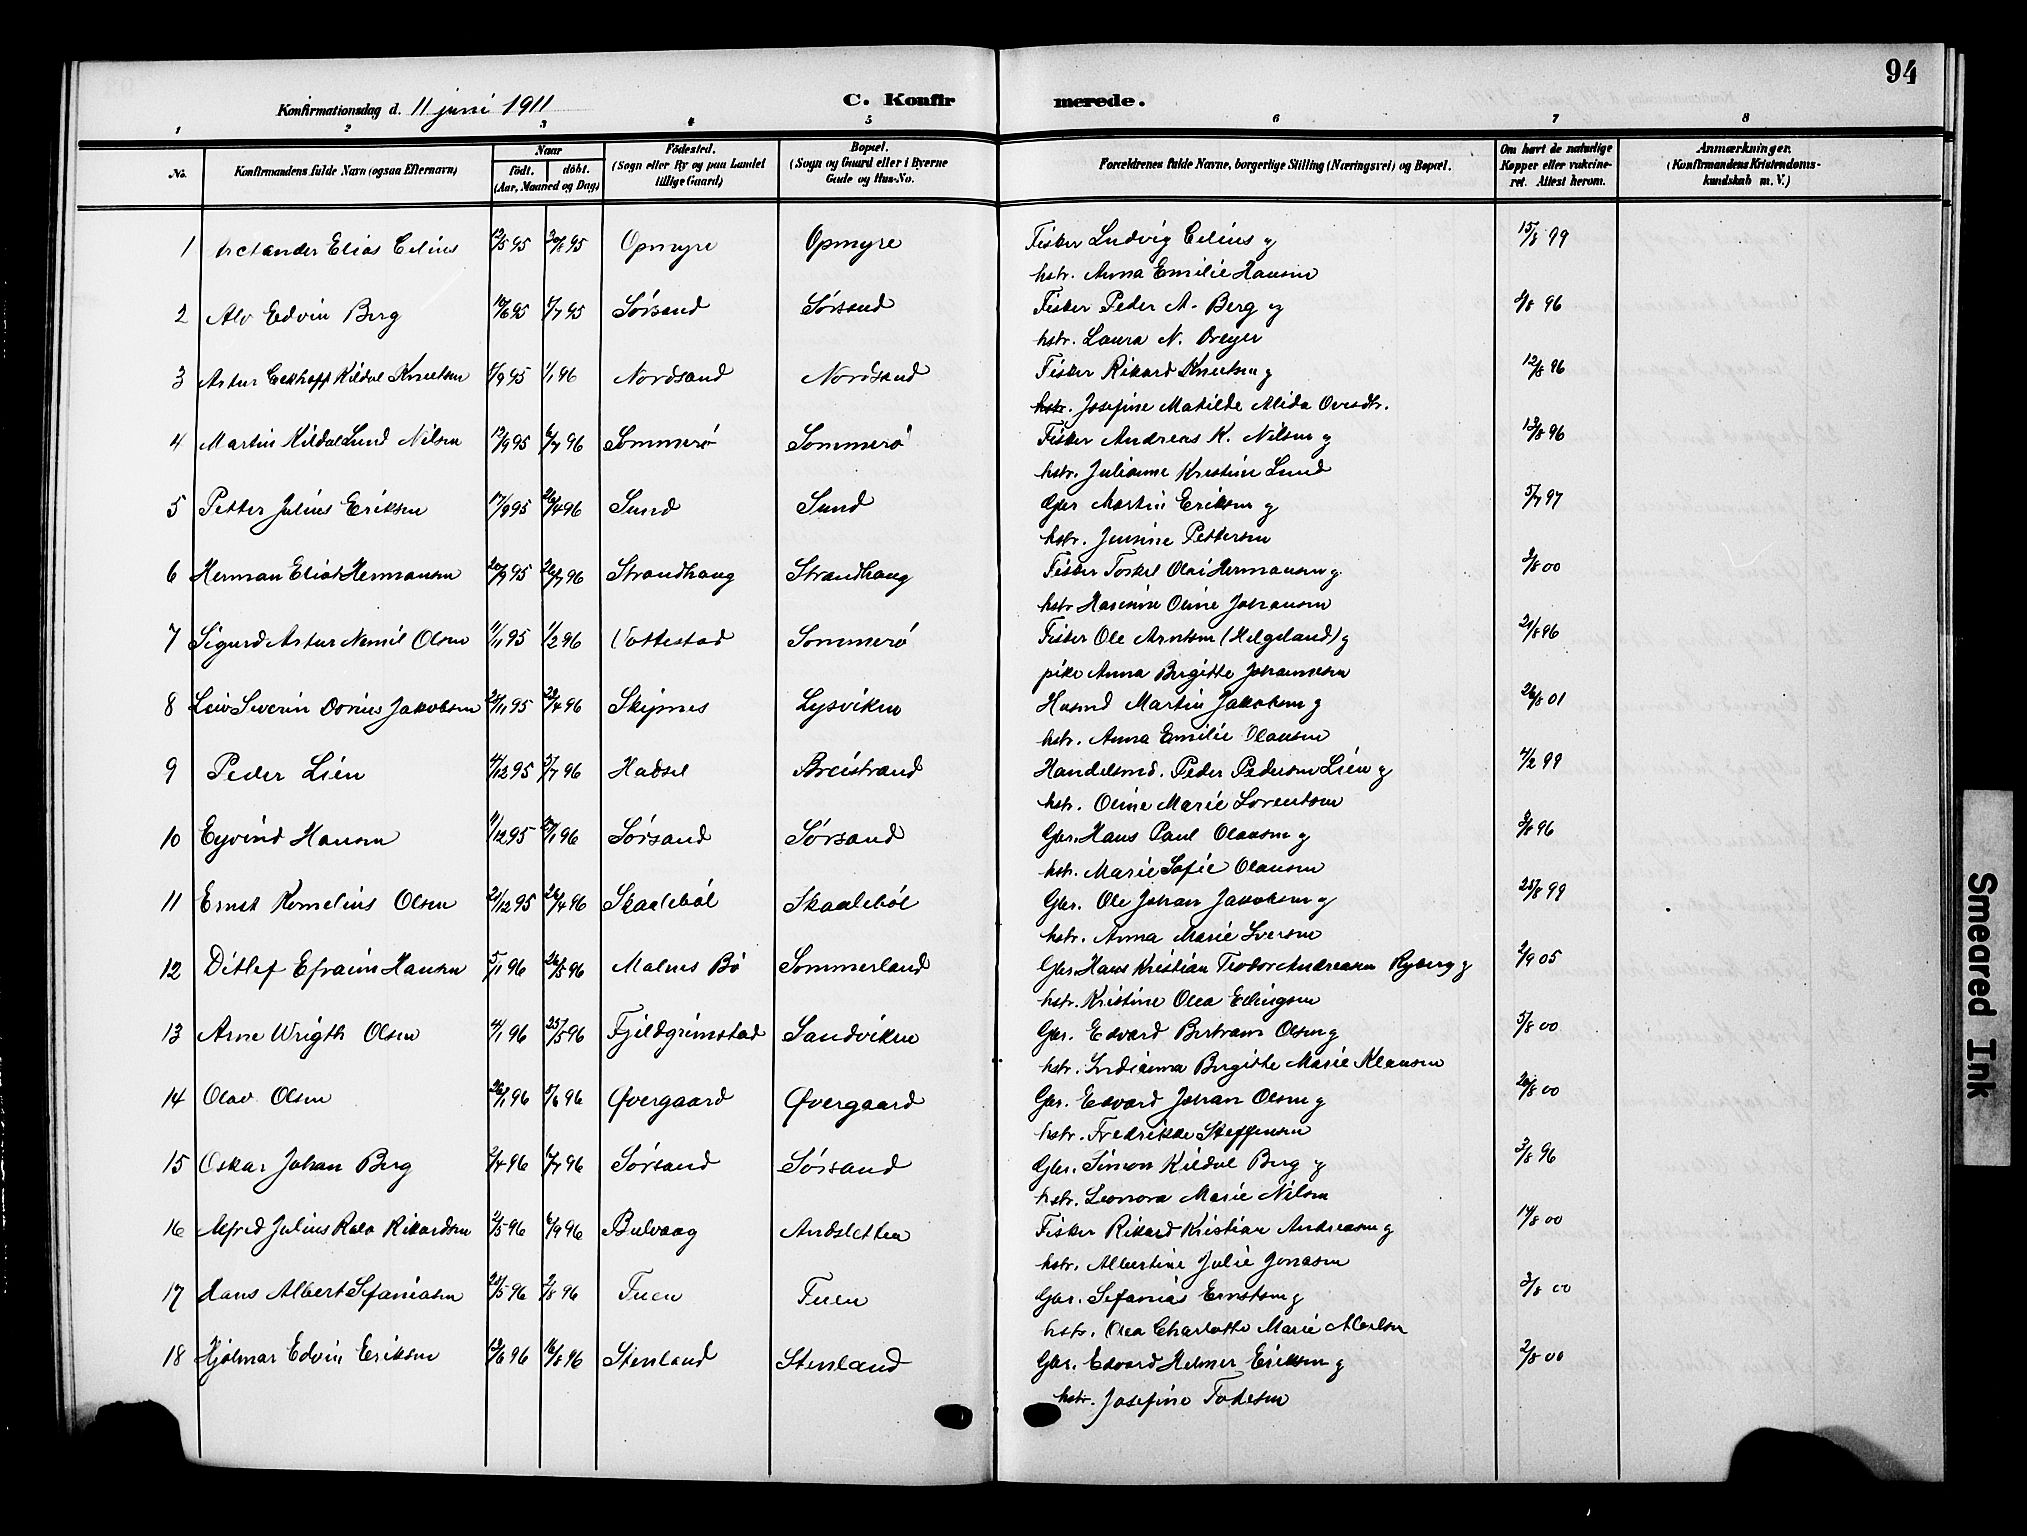 94
Konfirmationsdag d. 11 juni 1911 C. Konfirmerede.
1 2 3 4 5 6 7 8
No. Konfirmandens fulde Navn (ogsaa Efternavn) Naar födt. döbt. (Aar, Maaned og Dag) Födested. (Sogn eller By og paa Landet tillige Gaard) Bopæl. (Sogn og Gaard eller i Byerne Gade og Hus-No. Forældrenes fulde Navne, borgerlige Stilling (Næringsvei) og Bopæl. Om havt de naturlige Kopper eller vakcineret. Attest herom. Anmærkninger. (Konfirmandens Kristendomskundskab m. V.)
1 Elias Celius 12/5 95 20/8 95 Opmyre Opmyre Fisker Ludvig Celius og 15/8 99
hstr. Anna Emilie Hansen
2 Alv Edvin Berg 10/6 95 7/7 95 Sørsand Sørsand Fisker Peder A. Berg og 3/8 96
hstr. Laura N. Dreyer
3 Artur Eckhoff Kildal Knutsen 5/9 95 1/1 96 Nordsand Nordsand Fisker Rikard Knutsen og 12/8 96
hstr. Josefine Matilde Alida Ovesdtr.
4 Martin Kildal Lund Nilsen 13/9 95 6/7 96 Sommerø Sommerø Fisker Andreas K. Nilsen og 12/8 96
hstr. Julianne Kristine Lund
5 Petter Julius Eriksen 17/9 95 26/4 96 Sund Sund Gbr Martin Eriksen og 5/7 97
hstr. Jensine Pettersen
6 Herman Eliot Hermansen 20/9 95 26/7 96 Strandhaug Strandhaug Fisker Torkel Olai Hermansen og 3/8 00
hstr Hansine Oline Johansen
7 Sigurd Artur Nemil Olsen 11/11 95 1/2 96 Vottestad Sommerø Fisker Ole Arntsen (Helgeland) og 21/8 96
pike Anna Birgitte Johannesen
8 Leiv Severin Dorius Jakobsen 21/11 95 22/4 96 Skipnes Lysviken Husmd Martin Jakobsen og 26/8 01
hstr. Anna Emilie Olausen
9 Peder Lien 4/12 95 5/7 96 Hadsel Breistrand Handelsmd. Peder Pedersen Lien og 4/2 99
hstr. Oline Marie Lorentsen
10 Eyvind Hansen 11/12 95 27/1 96 Sørsand Sørsand Gbr. Hans Paul Olausen og 3/8 96
hstr. Marie Sofie Olausen
11 Ernst Kornelius Olsen 21/12 95 26/4 96 Skaalebøl Skaalebøl Gbr. Ole Johan Jakobsen og 25/8 99
hstr. Anna Marie Iversen
12 Ditlef Efraim Hansen 5/1 96 26/5 96 Malnes Bø Sommerland Gbr. Hans Kristian Teodor Andreasen Ryberg og 2/9 05
hstr. Kristine Olea Edingsen
13 Arne Wrigth Olsen 4/1 96 25/5 96 Fjeldgrimstad Sandviken Gbr. Edvard Bertram Olsen og 5/8 00
hstr. Indianna Birgithe Marie Klausen
14 Olav Olsen 26/1 96 5/6 96 Øvergaard Øvergaard Gbr. Edvard Johan Olsen og 26/8 00
hstr. Fredrikke Steffensen
15 Oskar Johan Berg 2/4 96 6/7 96 Sørsand Sørsand Gbr. Simon Kildal Berg og 3/8 96
hstr. Leonora Marie Nilsen
16 Alfred Julius Rikardsen 2/5 96 6/9 96 Bulvaag Andsletten Fisker Rikard Kristian Andreasen og 14/8 00
hstr. Albertine Julie Jonasen
17 Hans Albert Sefaniasen 25/5 96 2/8 96 Fuen Fuen Gbr. Sefanias Ernstsen og 3/8 00
hstr. Olea Charlotte Marie
18 Hjalmar Edvin Eriksen 12/6 96 16/8 96 Stenland Stenland Gbr. Edvard Helmer Eriksen og 2/8 00
hstr. Josefine
Smeared Ink